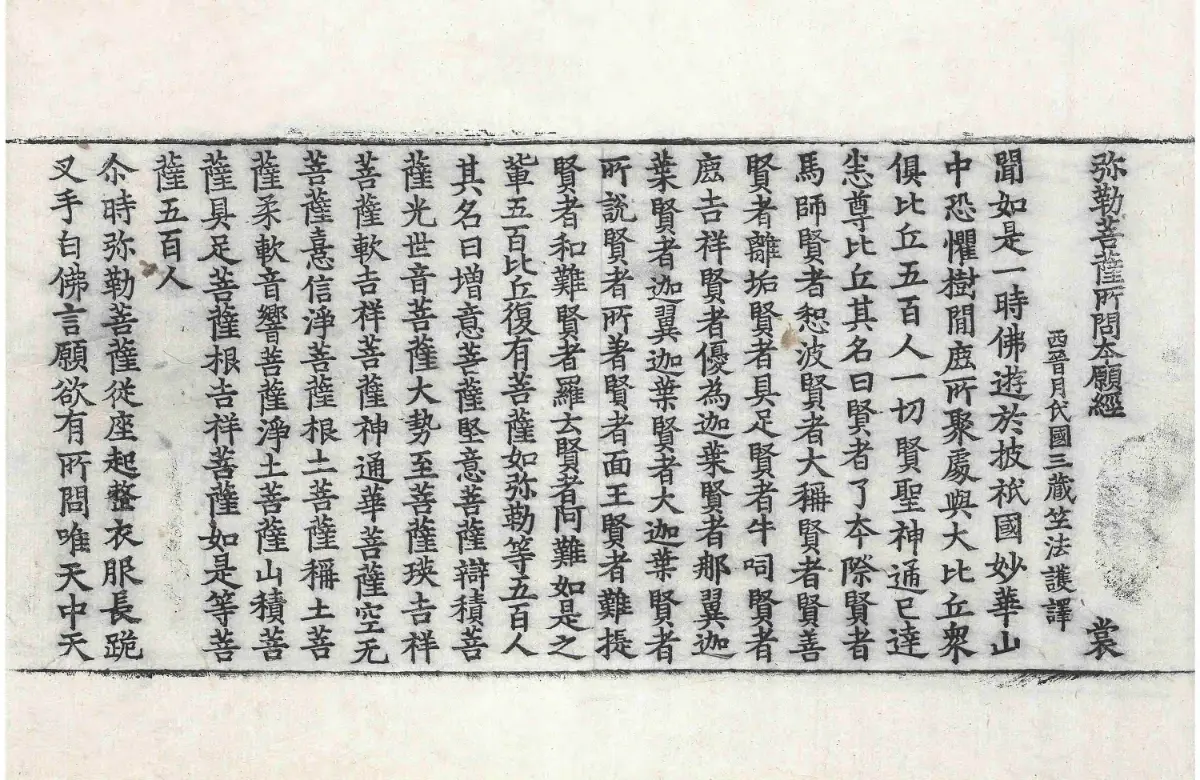 弥勒菩薩所問夲願經 裳
西晉月氏國三藏竺法護譯
聞如是一時佛遊於披祇國妙華山
中恐懼樹間鹿所聚處與大比丘衆
俱比丘五百人一切賢聖神通已達
悉尊比丘其名曰賢者了夲際賢者
馬師賢者惒波賢者大稱賢者賢善
賢者離垢賢者具足賢者牛呞賢者
鹿吉祥賢者優為迦葉賢者那翼迦
葉賢者迦翼迦葉賢者大迦葉賢者
所說賢者所著賢者面王賢者難提
賢者和難賢者羅云賢者阿難如是之
軰五百比丘復有菩薩如弥勒等五百人
其名曰增意菩薩堅意菩薩辯積菩
薩光世音菩薩大勢至菩薩瑛吉祥
菩薩軟吉祥菩薩神通華菩薩空无
菩薩憙信淨菩薩根土菩薩稱土菩
薩柔軟音響菩薩淨土菩薩山積菩
薩具足菩薩根吉祥菩薩如是等菩
薩五百人
尒時弥勒菩薩從座起整衣服長跪
叉手白佛言願欲有所問唯天中天